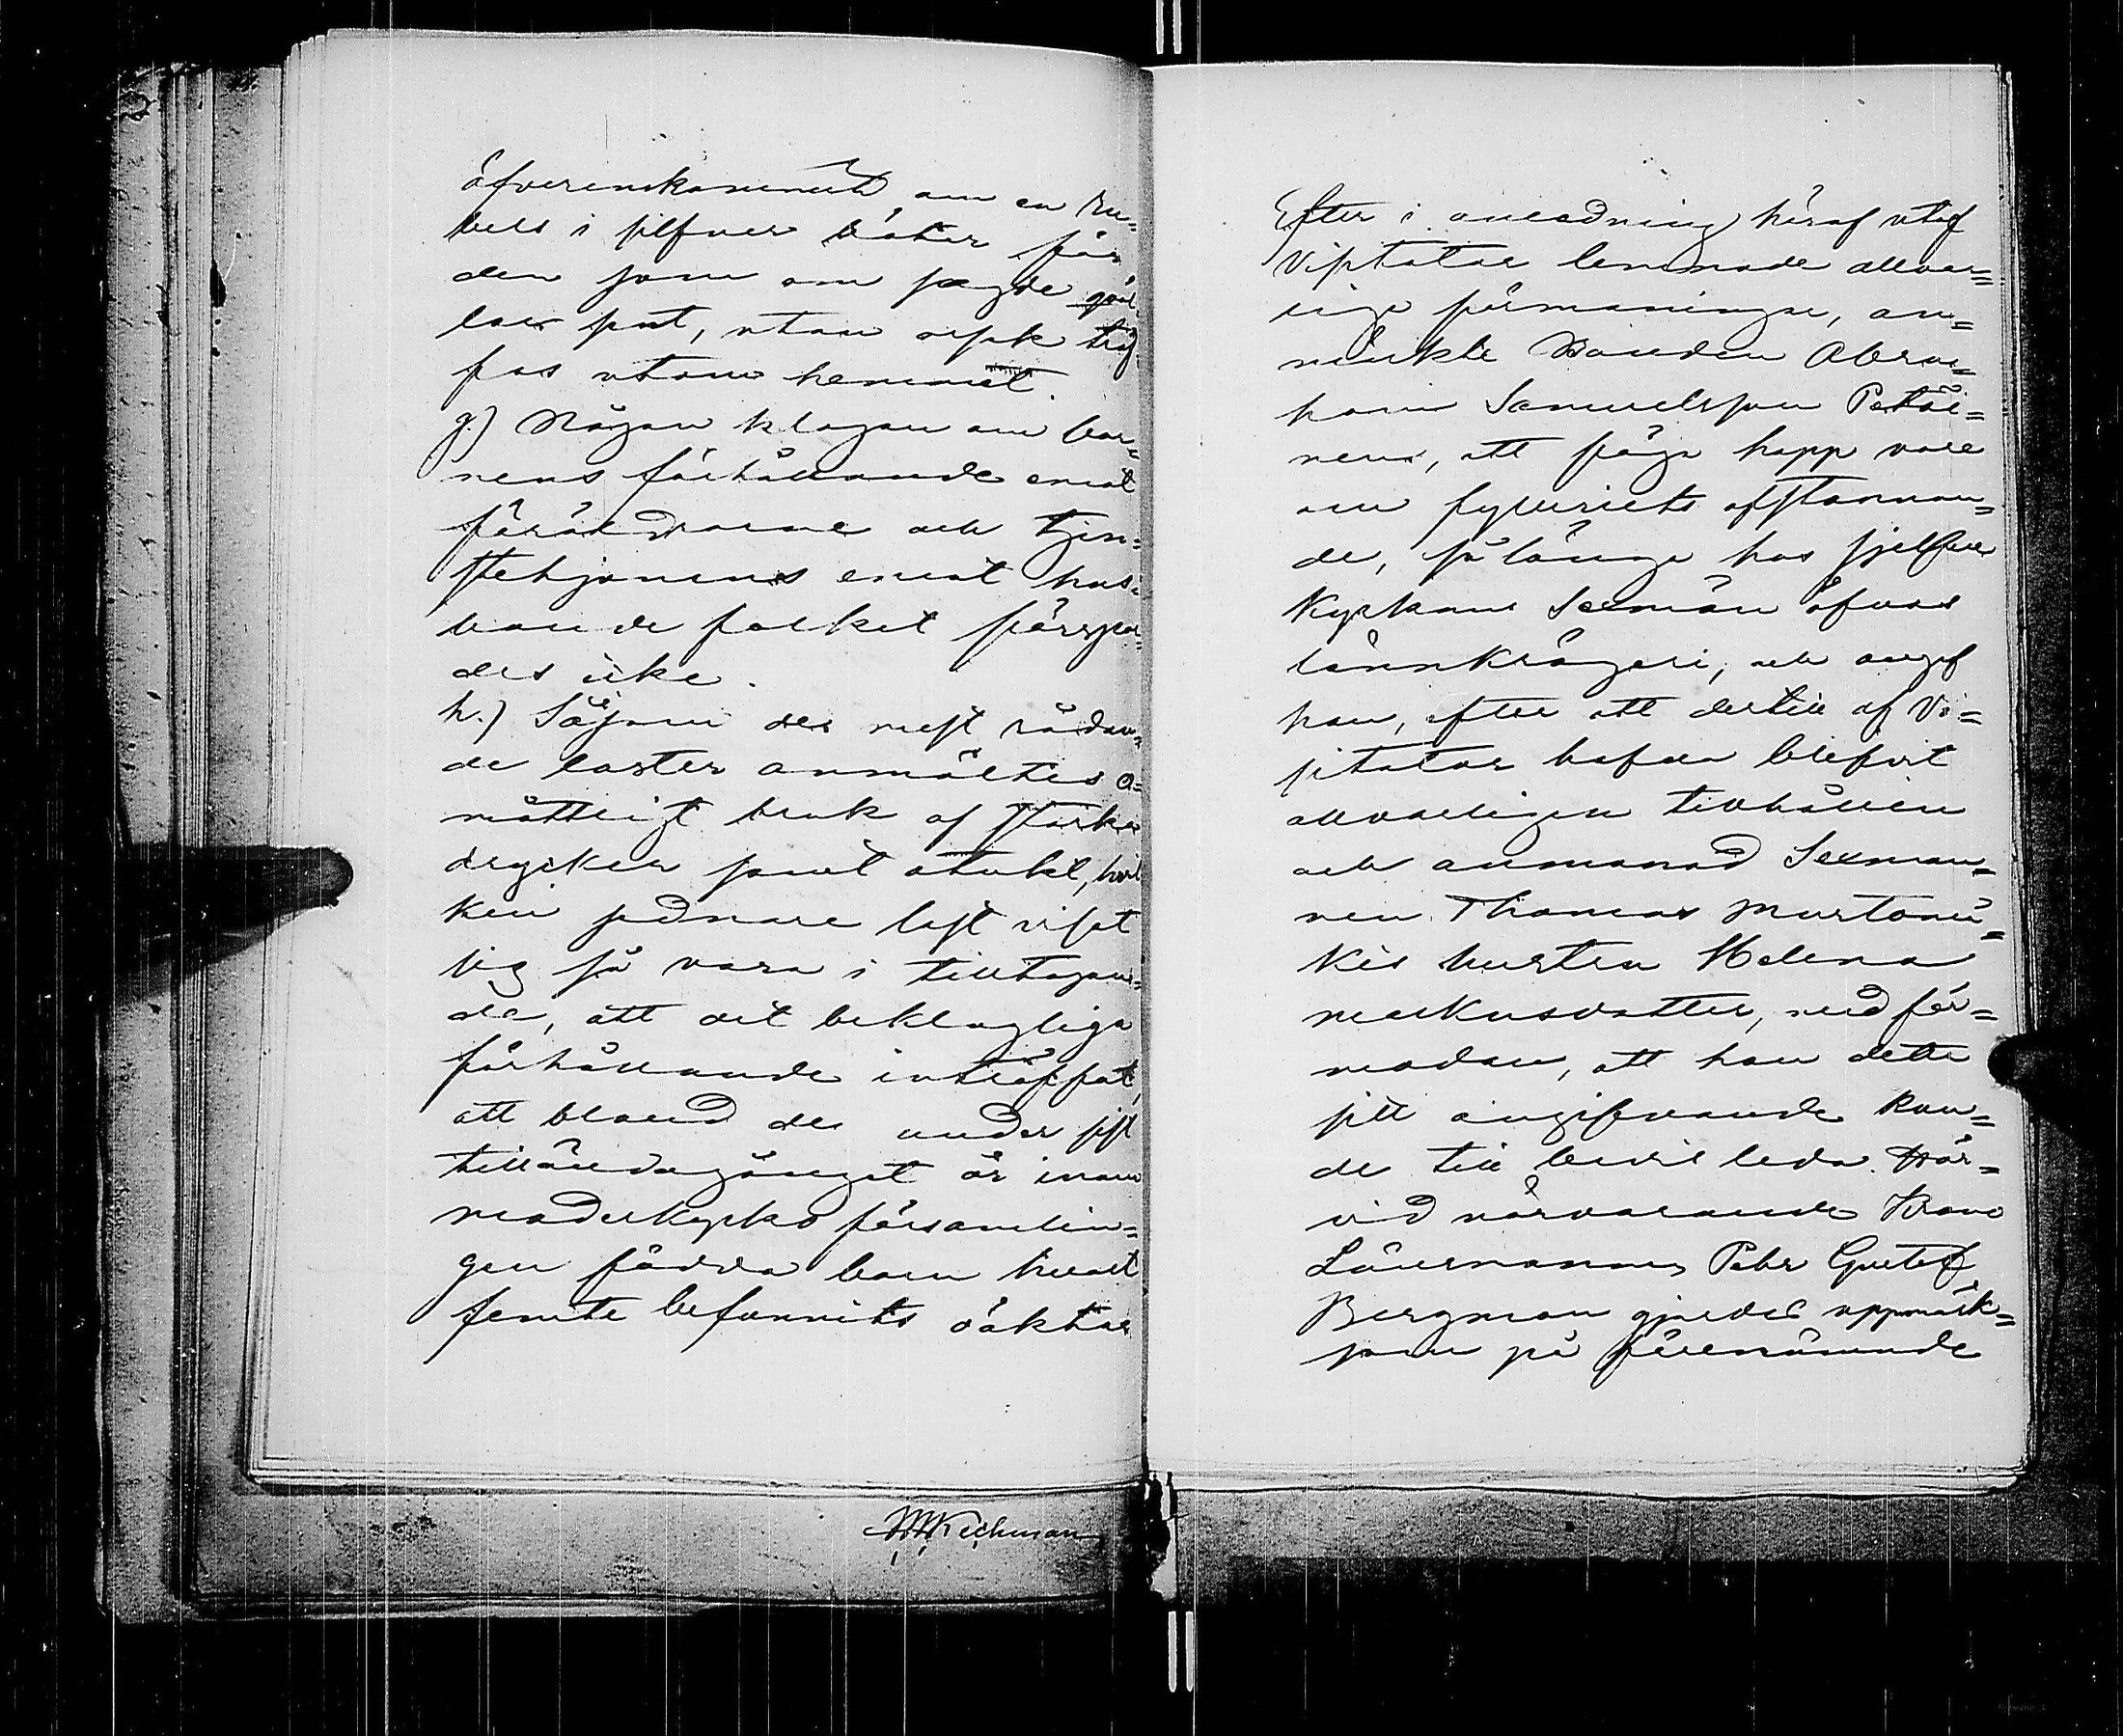 öfverenskommet om en Ru-
bels i silfver böter för
den som om sagde qväl
lar sent, utan orsak träf-
fas utom hemmet.
g.) Någon klagan om bar=
nens förhållande emot
föräldrarne och tjen=
stehjonens emot hus-
bonde folket förspor=
des icke.
h.) Såsom de mest rådan-
de laster anmältes o=
måttligt bruk af starka
drycker samt otukt, hvil
ken sednare last visat
sig så vara i tilltagan=
de, att det beklagliga
förhållande inträffat,
att bland de under sist
tilländagångne år inom
moderkyrko församlin=
gen födda barn hvart
femte befunnits oäkta.
MWKechman
Efter i anledning häraf utaf
Visitator lemnade allvar=
liga förmaningar, an=
märkte Bonden Abra=
ham Samuelsson Petäi=
nen, att föga hopp vore
om fylleriets afstannan=
de, så länge hos sjelfva
Kyrkans Sexmän öfvas
lönnkrögeri, och angaf
han, efter att dertill af Vi=
sitator hafva blifvit
allvarligen tillhållen
och anmanad Sexman=
nen Thomas
hustru Helena
Markusdotter, med för=
modan, att han detta
sitt angifvande kun=
de till bevis leda. Här=
vid närvarande Krono
Länsmannen Pehr Gustaf
Bergman gjordes uppmärk=
sam på förenämnde